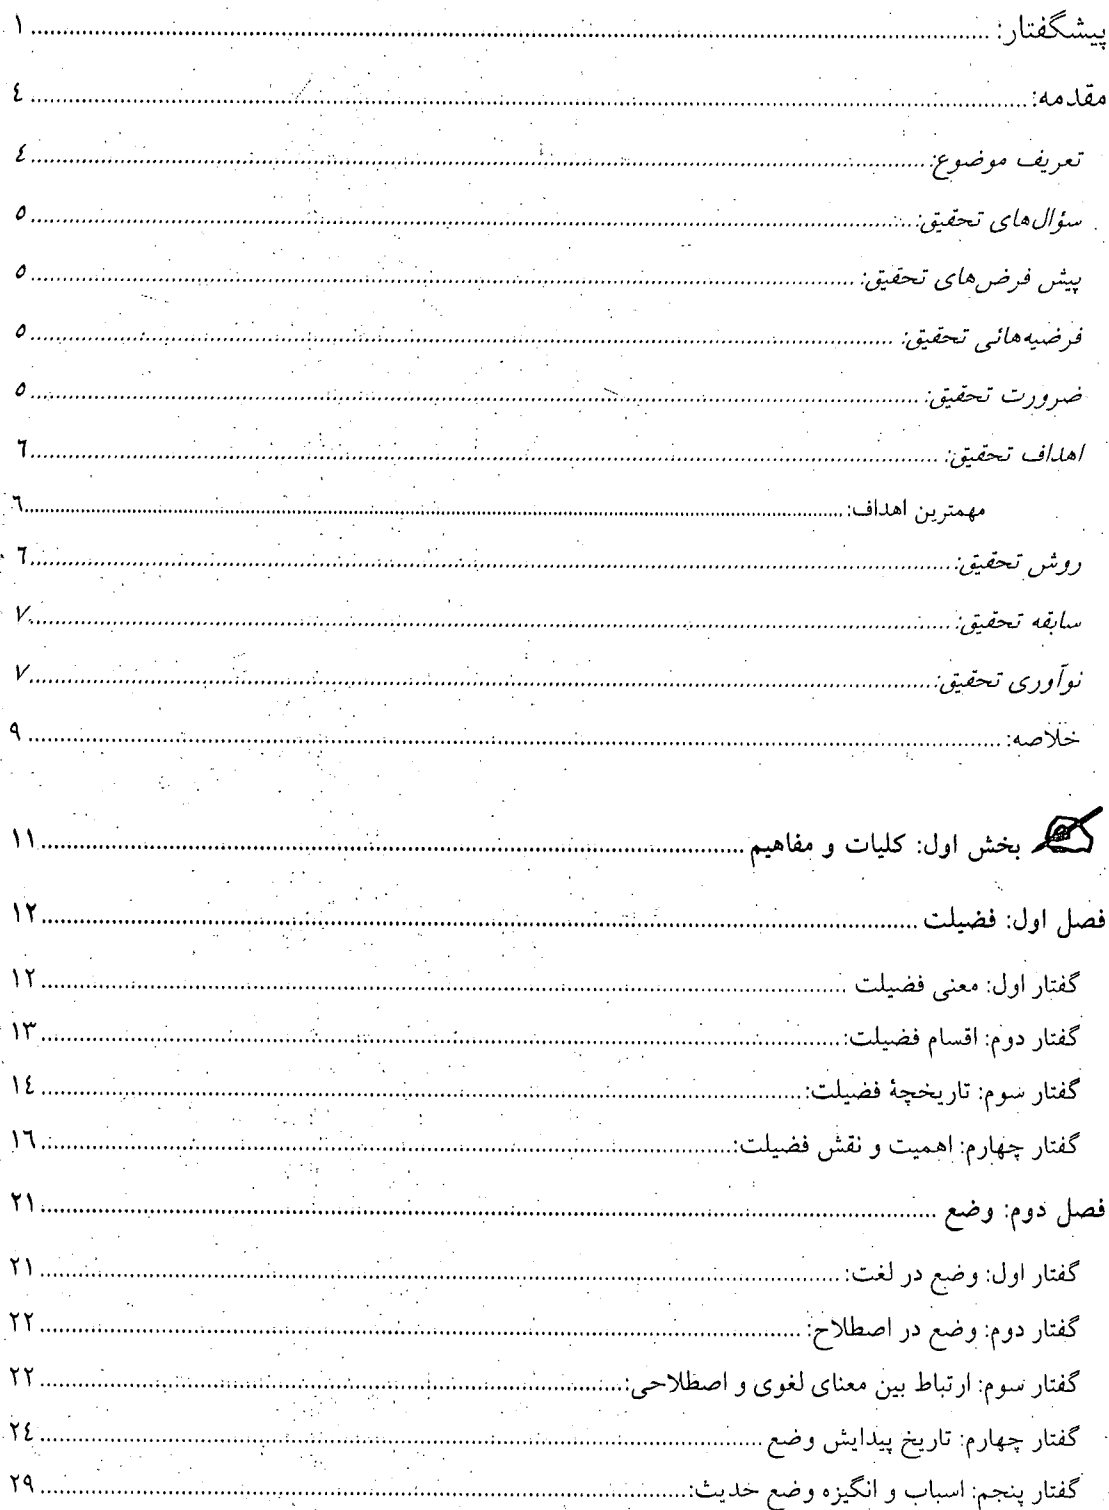 پیشگفتار: ۱
مقدمه: ٤
تعریف موضوع: ٤
سؤال‌های تحقیق: ٥
پیش فرض‌های تحقیق: ٥
فرضیه‌هائی تحقیق: ٥
ضرورت تحقیق: ٥
اهداف تحقیق: ٦
مهمترین اهداف: ٦
روش تحقیق: ٦
سابقه تحقیق: ۷
نوآوری تحقیق: ۷
خلاصه: ۹
بخش اول: کلیات و مفاهیم ۱۱
فصل اول: فضیلت ۱۲
گفتار اول: معنی فضیلت ۱۲
گفتار دوم: اقسام فضیلت: ۱۳
گفتار سوم: تاریخچهٔ فضیلت: ۱٤
گفتار چهارم: اهمیت و نقش فضیلت: ۱٦
فصل دوم: وضع ۲۱
گفتار اول: وضع در لغت: ۲۱
گفتار دوم: وضع در اصطلاح: ۲۲
گفتار سوم: ارتباط بین معنای لغوی و اصطلاحی: ۲۲
گفتار چهارم: تاریخ پیدایش وضع ۲٤
گفتار پنجم: اسباب و انگیزه وضع حدیث: ۲۹